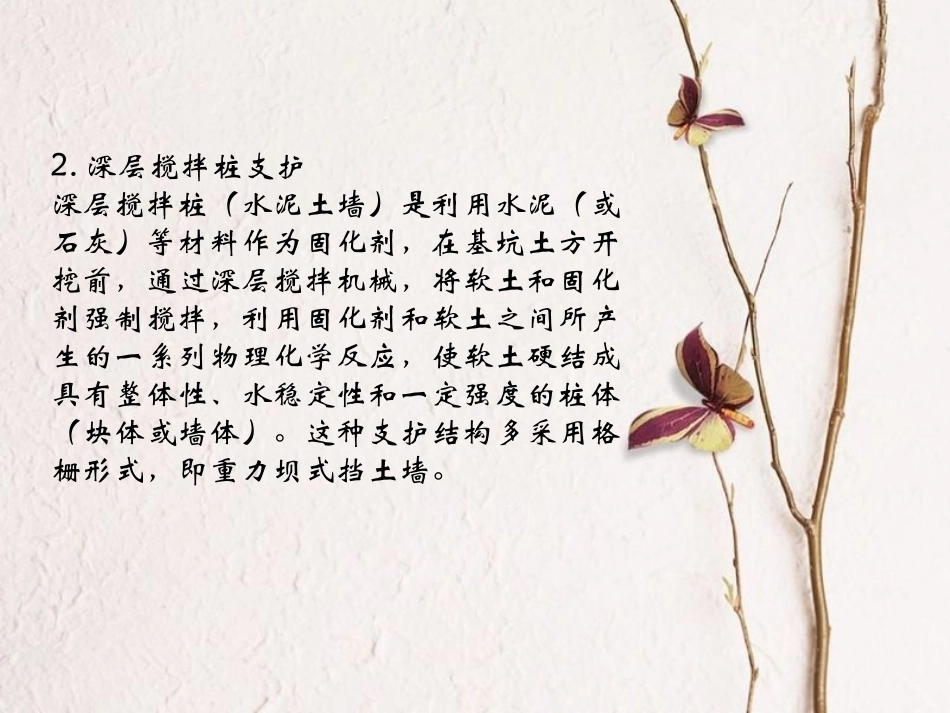 2. 深层搅拌桩支护
深层搅拌桩（水泥土墙）是利用水泥（或
石灰）等材料作为固化剂，在基坑土方开
挖前，通过深层搅拌机械，将软土和固化
剂强制搅拌，利用固化剂和软土之间所产
生的一系列物理化学反应，使软土硬结成
具有整体性、水稳定性和一定强度的桩体
（块体或墙体）。这种支护结构多采用格
栅形式，即重力坝式挡土墙。